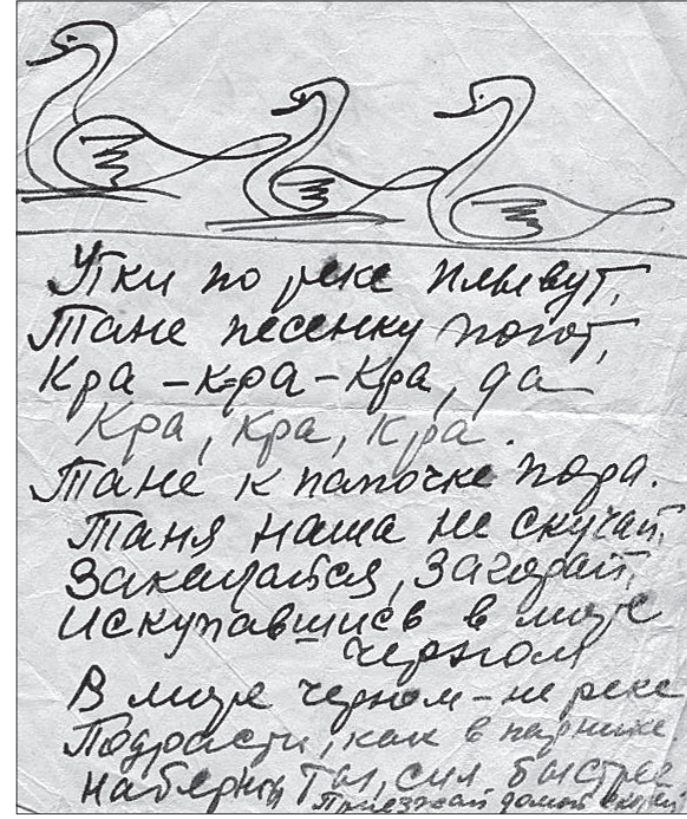 Утки по реке плывут,
Тане песенку поют,
Кра – кра – Кра, да
Кра, кра, кра.
Тане к папочке пора.
Таня наша не скучай,
Закаляйся, загорай,
Искупавшись в море
черном
В море черном – не реке
Подрасти, как в парнике.
Наберись ты, сил быстрее
Приезжай домой скорей